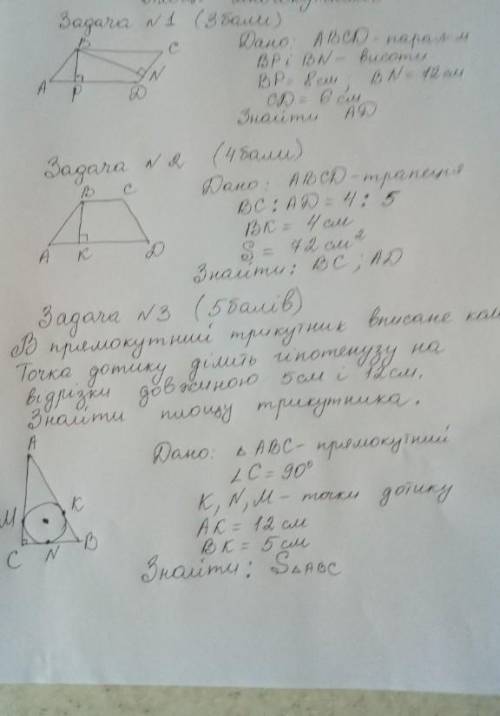 Задача №1 (3 бали)
B
C
A
P
D
N
Дано: ABCD - парал-м
BP і BN - висоти
BP = 8 см; BN = 12 см
CD = 6 см
Знайти AD
Задача №2 (4 бали)
B
C
A
K
D
Дано: ABCD - трапеція
BC : AD = 4 : 5
BK = 4 см
S = 72 см²
Знайти: BC; AD
Задача №3 (5 балів)
В прямокутний трикутник вписане кол
Точка дотику ділить гіпотенузу на
відрізки довжиною 5 см і 12 см.
Знайти площу трикутника.
A
M
K
C
N
B
Дано: △ABC - прямокутний
∠C = 90°
K, N, M - точки дотику
AK = 12 см
BK = 5 см
Знайти: S△ABC